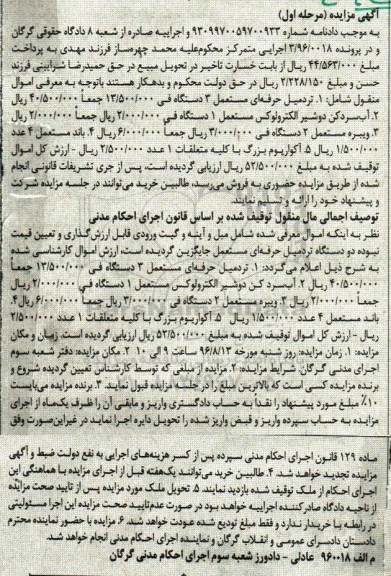 آگهی مزایده (مرحله اول)
به موجب دادنامه شماره ۹۳۰۹۹۷۰۰۵۹۷۰۰۹۳۳ و اجراییه صادره از شعبه ۸ دادگاه حقوقی گرگان
و در پرونده ۳/۹۶/۰۰۱۸ اجرایی متمرکز محکوم‌علیه محمد چهره‌ساز فرزند مهدی به پرداخت
مبلغ ۴۴/۵۶۳/۰۰۰ ریال از بابت خسارت تاخیر در تحویل مبیع در حق حمیدرضا شرابینی فرزند
حسن و مبلغ ۲/۲۲۸/۱۵۰ ریال در حق دولت محکوم و بدهکار هستند باتوجه به معرفی اموال
منقول شامل: ۱. تردمیل حرفه‌ای مستعمل ۳ دستگاه فی ۱۳/۵۰۰/۰۰۰ جمعاً ۴۰/۵۰۰/۰۰۰ ریال
۲. آب‌سردکن دوشیر الکترولوکس مستعمل ۱ دستگاه فی ۲/۰۰۰/۰۰۰ ریال جمعاً ۲/۰۰۰/۰۰۰ ریال
۳. ویبره مستعمل ۲ دستگاه فی ۳/۰۰۰/۰۰۰ ریال جمعاً ۶/۰۰۰/۰۰۰ ریال ۴. باند مستعمل ۴ عدد
۱/۵۰۰/۰۰۰ ریال ۵. آکواریوم بزرگ با کلیه متعلقات ۱ عدد ۲/۵۰۰/۰۰۰ ریال - ارزش کل اموال
توقیف شده به مبلغ ۵۲/۵۰۰/۰۰۰ ریال ارزیابی گردیده است، پس از جری تشریفات قانونی انجام
شده از طریق مزایده حضوری به فروش می‌رسد، طالبین خرید می‌توانند در جلسه مزایده شرکت
و پیشنهاد خود را ارائه و تسلیم نمایند.
توصیف اجمالی مال منقول توقیف شده بر اساس قانون اجرای احکام مدنی
نظر به اینکه اموال معرفی شده شامل مبل و آینه و گیت ورودی قابل ارزش‌گذاری و تعیین قیمت
نبوده دو دستگاه تردمیل حرفه‌ای مستعمل جایگزین گردیده است، ارزش اموال کارشناسی شده
به شرح ذیل اعلام می‌گردد: ۱. تردمیل حرفه‌ای مستعمل ۳ دستگاه فی ۱۳/۵۰۰/۰۰۰ جمعاً
۴۰/۵۰۰/۰۰۰ ریال ۲. آب‌سرد کن دوشیر الکترولوکس مستعمل ۱ دستگاه فی ۲/۰۰۰/۰۰۰ ریال
جمعاً ۲/۰۰۰/۰۰۰ ریال ۳. ویبره مستعمل ۲ دستگاه فی ۳/۰۰۰/۰۰۰ ریال جمعاً ۶/۰۰۰/۰۰۰ ریال ۴.
باند مستعمل ۴ عدد ۱/۵۰۰/۰۰۰ ریال ۵. آکواریوم بزرگ با کلیه متعلقات ۱ عدد ۲/۵۰۰/۰۰۰
ریال - ارزش کل اموال توقیف شده به مبلغ ۵۲/۵۰۰/۰۰۰ ریال ارزیابی گردیده است. زمان و مکان
مزایده: ۱. زمان مزایده: روز شنبه مورخه ۹۶/۸/۱۳ ساعت ۹ الی ۱۰ ۲. مکان مزایده: دفتر شعبه سوم
اجرای مدنی گرگان. شرایط مزایده: ۲. مزایده از مبلغی که توسط کارشناس تعیین گردیده شروع و
برنده مزایده کسی است که بالاترین مبلغ را در جلسه مزایده قبول نماید. ۳. برنده مزایده می‌بایست
۱۰٪ مبلغ مورد پیشنهاد را نقداً به حساب دادگستری واریز و مابقی آن را ظرف یک‌ماه از اجرای
مزایده به حساب سپرده واریز و قبض واریز شده را تحویل دایره اجرا نماید در غیراین‌صورت وفق
ماده ۱۲۹ قانون اجرای احکام مدنی سپرده پس از کسر هزینه‌های اجرایی به نفع دولت ضبط و آگهی
مزایده تجدید خواهد شد. ۴. طالبین خرید می‌توانند یک‌هفته قبل از اجرای مزایده با هماهنگی این
اجرای احکام از ملک توقیف شده بازدید نمایند. ۵. تحویل ملک مورد مزایده پس از تایید صحت مزایده
از ناحیه دادگاه صادرکننده اجراییه خواهد بود در صورت عدم‌تایید صحت مزایده این اجرا مسئولیتی
در رابطه با خریدار ندارد و فقط مبلغ تودیع شده عودت خواهد شد. ۶. مزایده با حضور نماینده محترم
دادستان دادسرای عمومی و انقلاب گرگان و نماینده اجرای احکام مدنی انجام خواهد شد.
م الف ۹۶۰۰۱۸ عادلی - دادورز شعبه سوم اجرای احکام مدنی گرگان